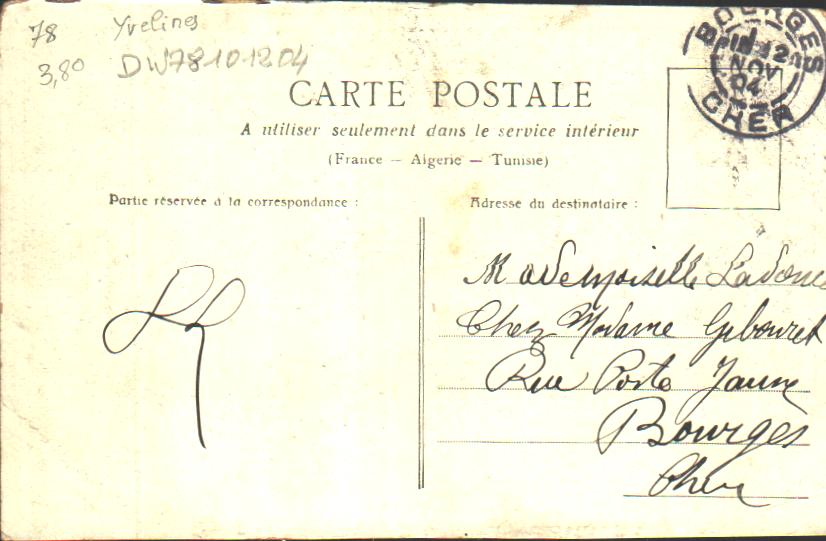 78 Yvelines
3,80 DW78101204
BOURGES
12
NOV
04
CHER
CARTE POSTALE
A utiliser seulement dans le service intérieur
(France — Algerie — Tunisie)
Partie réservée à la correspondance :
Adresse du destinataire :
Mademoiselle
Chez Madame Gibouret
Rue Porte Jaune
Bourges
Cher